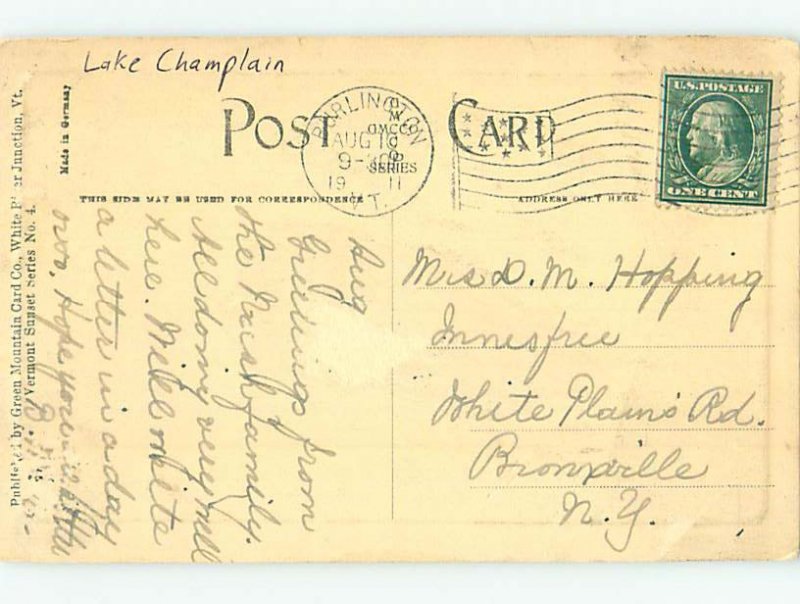 Lake Champlain
POST CARD
BURLINGTON
AUG 10
9-30P
19 11
VT.
SERIES
U.S. POSTAGE
ONE CENT
THIS SIDE MAY BE USED FOR CORRESPONDENCE
ADDRESS ONLY HERE
Made in Germany
Published by Green Mountain Card Co., White River Junction, Vt.
Vermont Sunset Series No. 4.
Aug
Greetings from
the Nash family.
All doing very well
here. Will write
a letter in a day
or so. Hope you
Mrs D. M. Hopping
Innesfree
White Plains Rd.
Bronxville
N.Y.